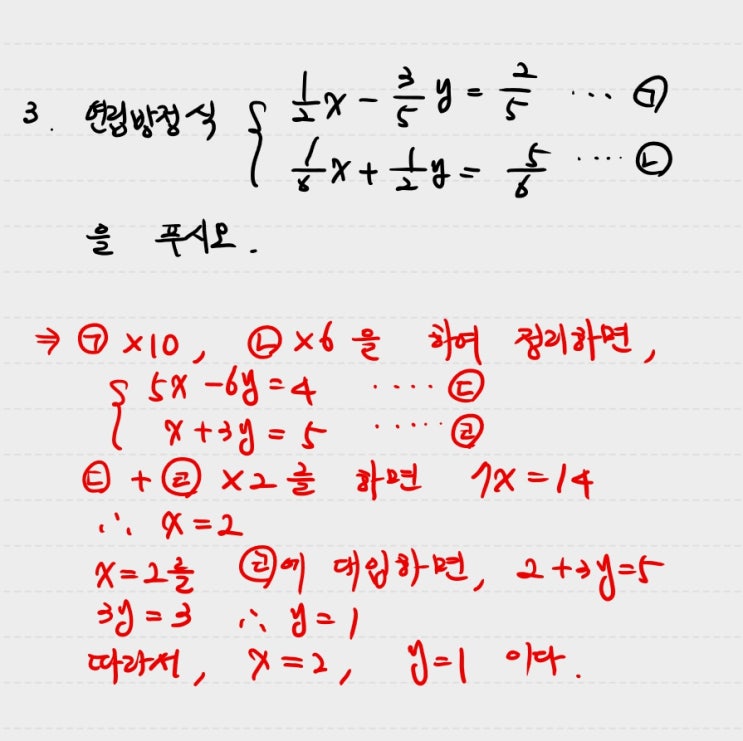 3. 연립방정식 { 1/2 x - 3/5 y = 2/5 ... ㉠
1/6 x + 1/2 y = 5/6 .... ㉡
을 푸시오.
⇒ ㉠ ×10, ㉡ ×6 을 하여 정리하면,
{ 5x - 6y = 4 .... ㉢
x + 3y = 5 ..... ㉣
㉢ + ㉣ ×2 를 하면 7x = 14
∴ x = 2
x = 2를 ㉣에 대입하면, 2 + 3y = 5
3y = 3 ∴ y = 1
따라서, x = 2, y = 1 이다.